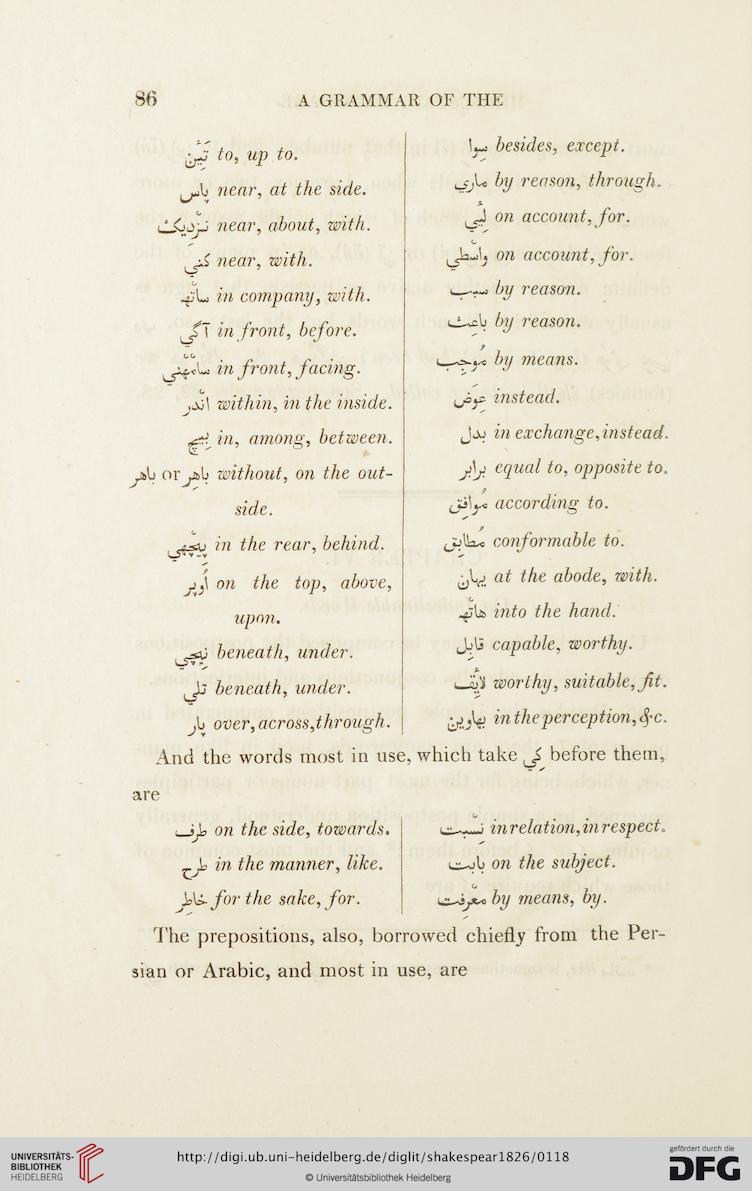 86 A GRAMMAR OF THE
تَئِین to, up to.
پاس near, at the side.
نزدیک near, about, with.
کَنی near, with.
ساتهہ in company, with.
آگی in front, before.
سامهنی in front, facing.
اندر within, in the inside.
بِیچ in, among, between.
باهر or باهِر without, on the out-
side.
پِیچهی in the rear, behind.
اُوپر on the top, above,
upon.
نِیچی beneath, under.
تلی beneath, under.
پار over, across, through.
سِوا besides, except.
ماری by reason, through.
لِیَی on account, for.
واسطی on account, for.
سبب by reason.
باعث by reason.
مُوجب by means.
عِوَض instead.
بدل in exchange, instead.
برابر equal to, opposite to.
مُوافق according to.
مُطابق conformable to.
یہان at the abode, with.
هاتهہ into the hand.
قابل capable, worthy.
لائق worthy, suitable, fit.
in the perception, &c.
And the words most in use, which take کِی before them,
are
طرف on the side, towards.
طرح in the manner, like.
خاطِر for the sake, for.
نِسبت in relation, in respect.
بابت on the subject.
معرفت by means, by.
The prepositions, also, borrowed chiefly from the Per-
sian or Arabic, and most in use, are
UNIVERSITÄTS-
BIBLIOTHEK
HEIDELBERG
http://digi.ub.uni-heidelberg.de/diglit/shakespear1826/0118
© Universitätsbibliothek Heidelberg
gefördert durch die
DFG